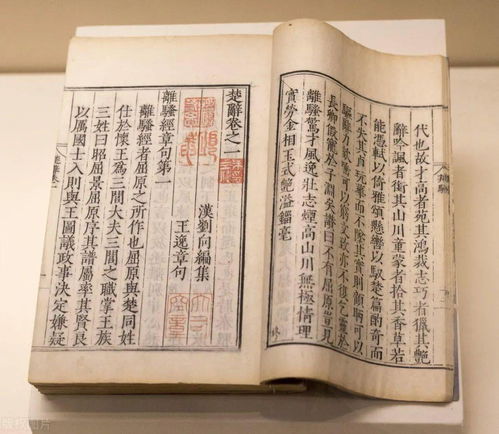 代也故才高者苑其鴻裁志巧者獵其艷
辭吟諷者銜其山川童蒙者拾其香草若
能憑軾以倚雅頌懸轡以馭楚篇酌奇而
不失其貞玩華而不墜其實則顧盼可以
驅辭力欬唾可以窮文致亦不復乞靈於
長卿假寵於子淵矣讚曰不有屈原豈見
離騷驚才風逸壯志煙高山川無極情理
實勞金相玉式艷溢錙毫
楚辭卷之一
漢劉向編集
王逸章句
離騷經章句第一
離騷經者屈原之所作也屈原與楚同姓
仕於懷王爲三閭大夫三閭之職掌王族
三姓曰昭屈景屈原序其譜屬率其賢良
以厲國士入則與王圖議政事決定嫌疑